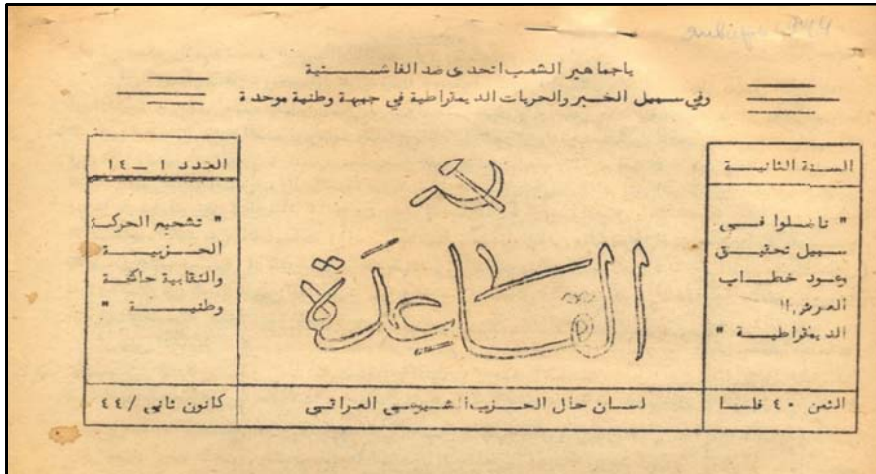 ياجماهير الشعب اتحدى ضد الفاشستية
وفي سبيل الخبز والحريات الديمقراطية في جبهة وطنية موحدة
السنة الثانية
" ناضلوا فى
سبيل تحقيق
وعود خطاب
العرش
الديمقراطية "
الثمن ٤٠ فلسا
القاعدة
لسان حال الحزب الشيوعى العراقى
العدد ١ _ ١٤
" تشجيع الحركة
الحزبية
والنقابية حاجة
وطنية "
كانون ثانى /٤٤